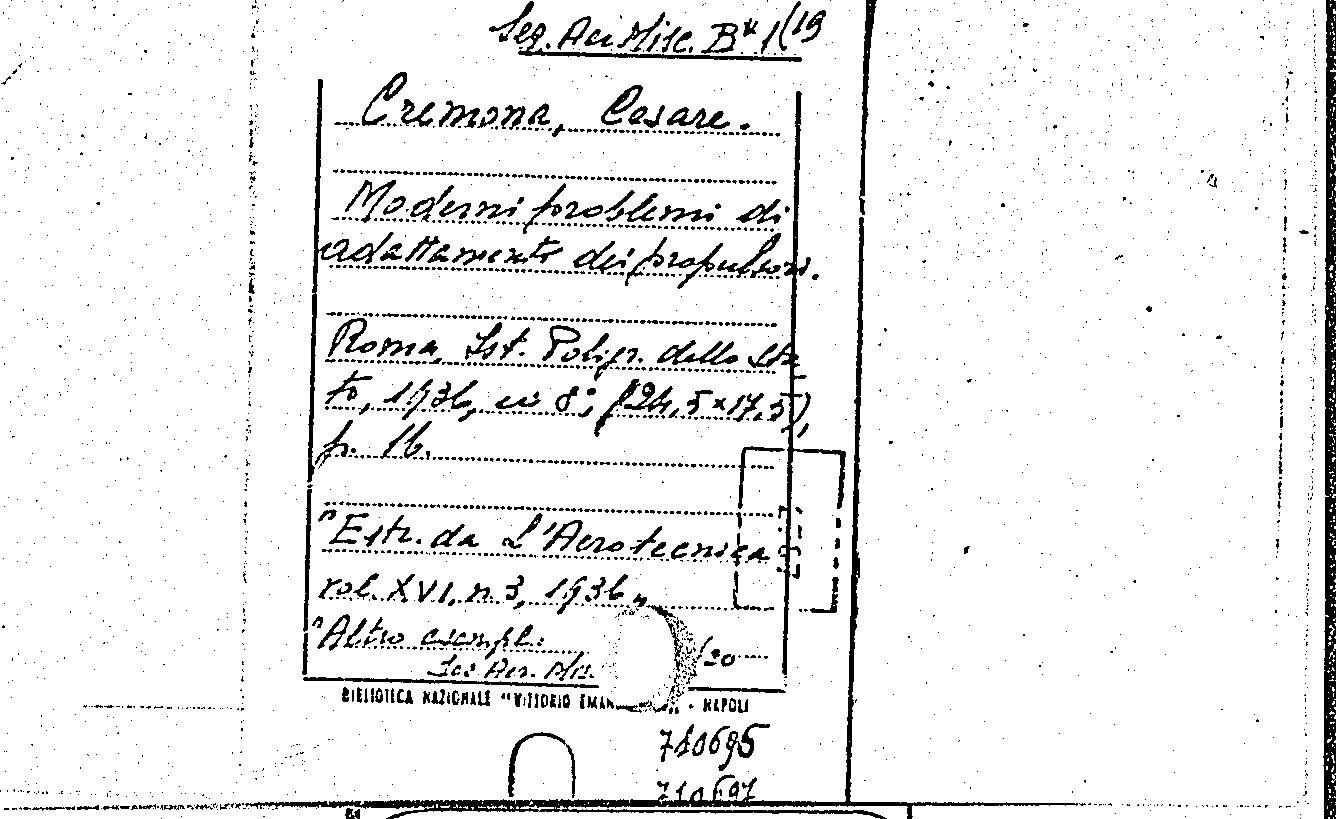 Sez. Aer. Misc. B* 1(19
Cremona, Cesare.
Moderni problemi di
adattamento dei propulsori.
Roma, Ist. Poligr. dello Sta
to, 1936, in 8°, (24,5×17,5),
p. 16.
"Estr. da L'Aerotecnica
vol. XVI, n. 3, 1936"
"Altro esempl:
Sez Aer. Mis. /20
BIBLIOTECA NAZIONALE "VITTORIO EMAN " - NAPOLI
710695
710697